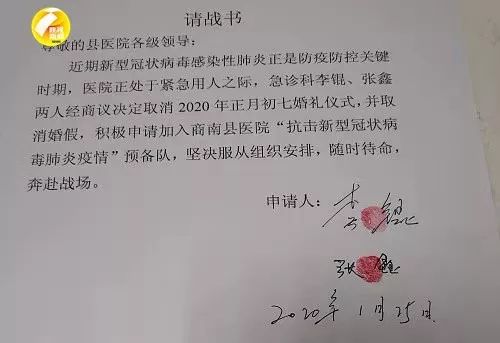 请战书
尊敬的县医院各级领导：
近期新型冠状病毒感染性肺炎正是防疫防控关键
时期，医院正处于紧急用人之际，急诊科李锟、张鑫
两人经商议决定取消 2020 年正月初七婚礼仪式，并取
消婚假，积极申请加入商南县医院“抗击新型冠状病
毒肺炎疫情”预备队，坚决服从组织安排，随时待命，
奔赴战场。
申请人：李锟
张鑫
2020年1月25日